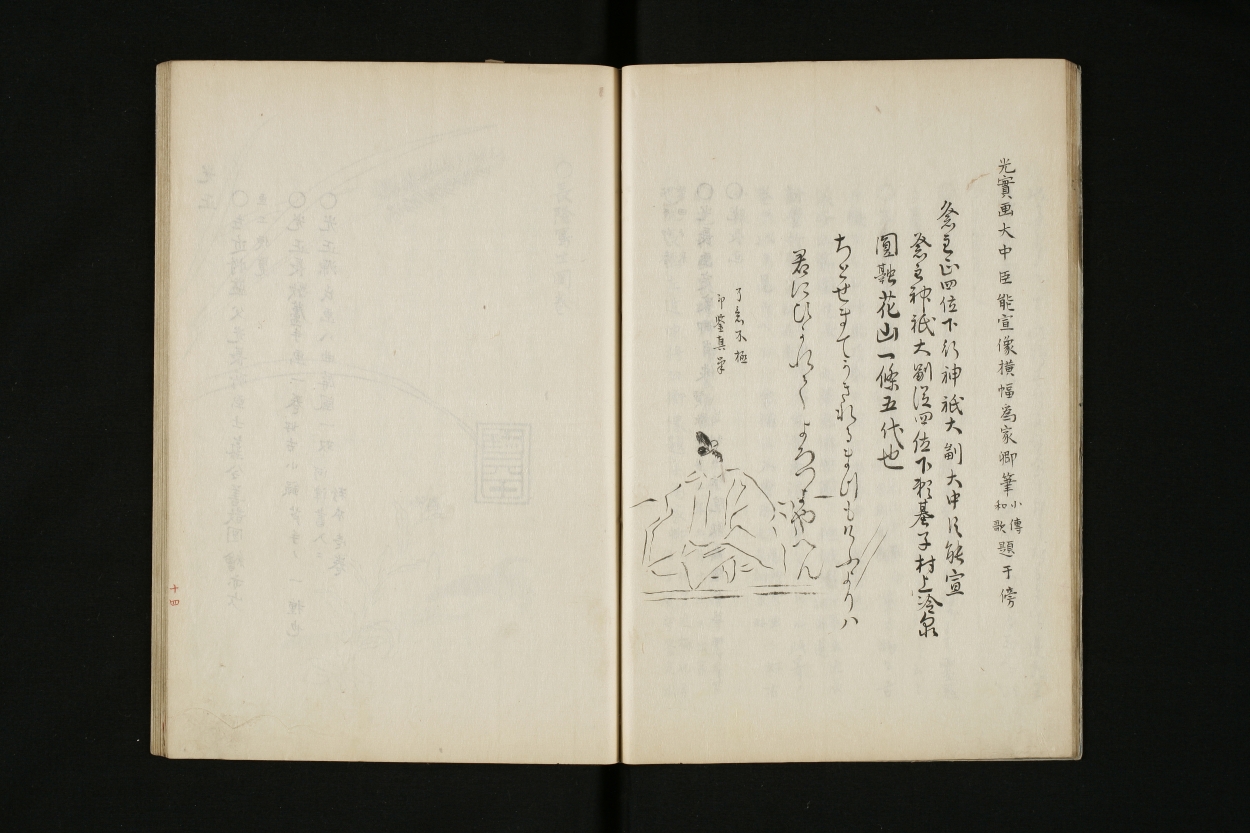 光實画大中臣能宣像横幅爲家卿筆小傳和歌題于傍
祭主正四位下行神祇大副大中臣能宣
祭主神祇大副従四位下頼基子村上冷泉
圓融花山一條五代也
ちとせまてかきれるまつもけふよりハ
君にひかれてよろつよやへん
了意不極
印鑒真筆
十四